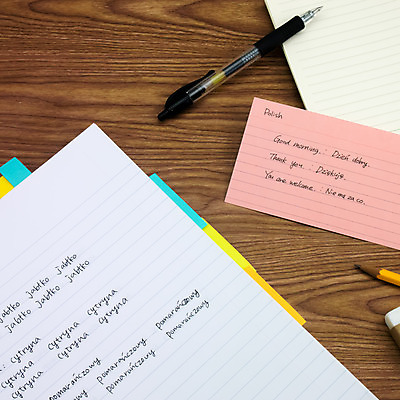 Polish
Good morning. : Dzień dobry.
Thank you. : Dziękuję.
You are welcome. : Nie ma za co.
Jabłko Jabłko Jabłko
Jabłko Jabłko Jabłko
: Cytryna Cytryna Cytryna
Cytryna Cytryna Cytryna
Cytryna
pomarańczowy pomarańczowy pomarańczowy
pomarańczowy pomarańczowy